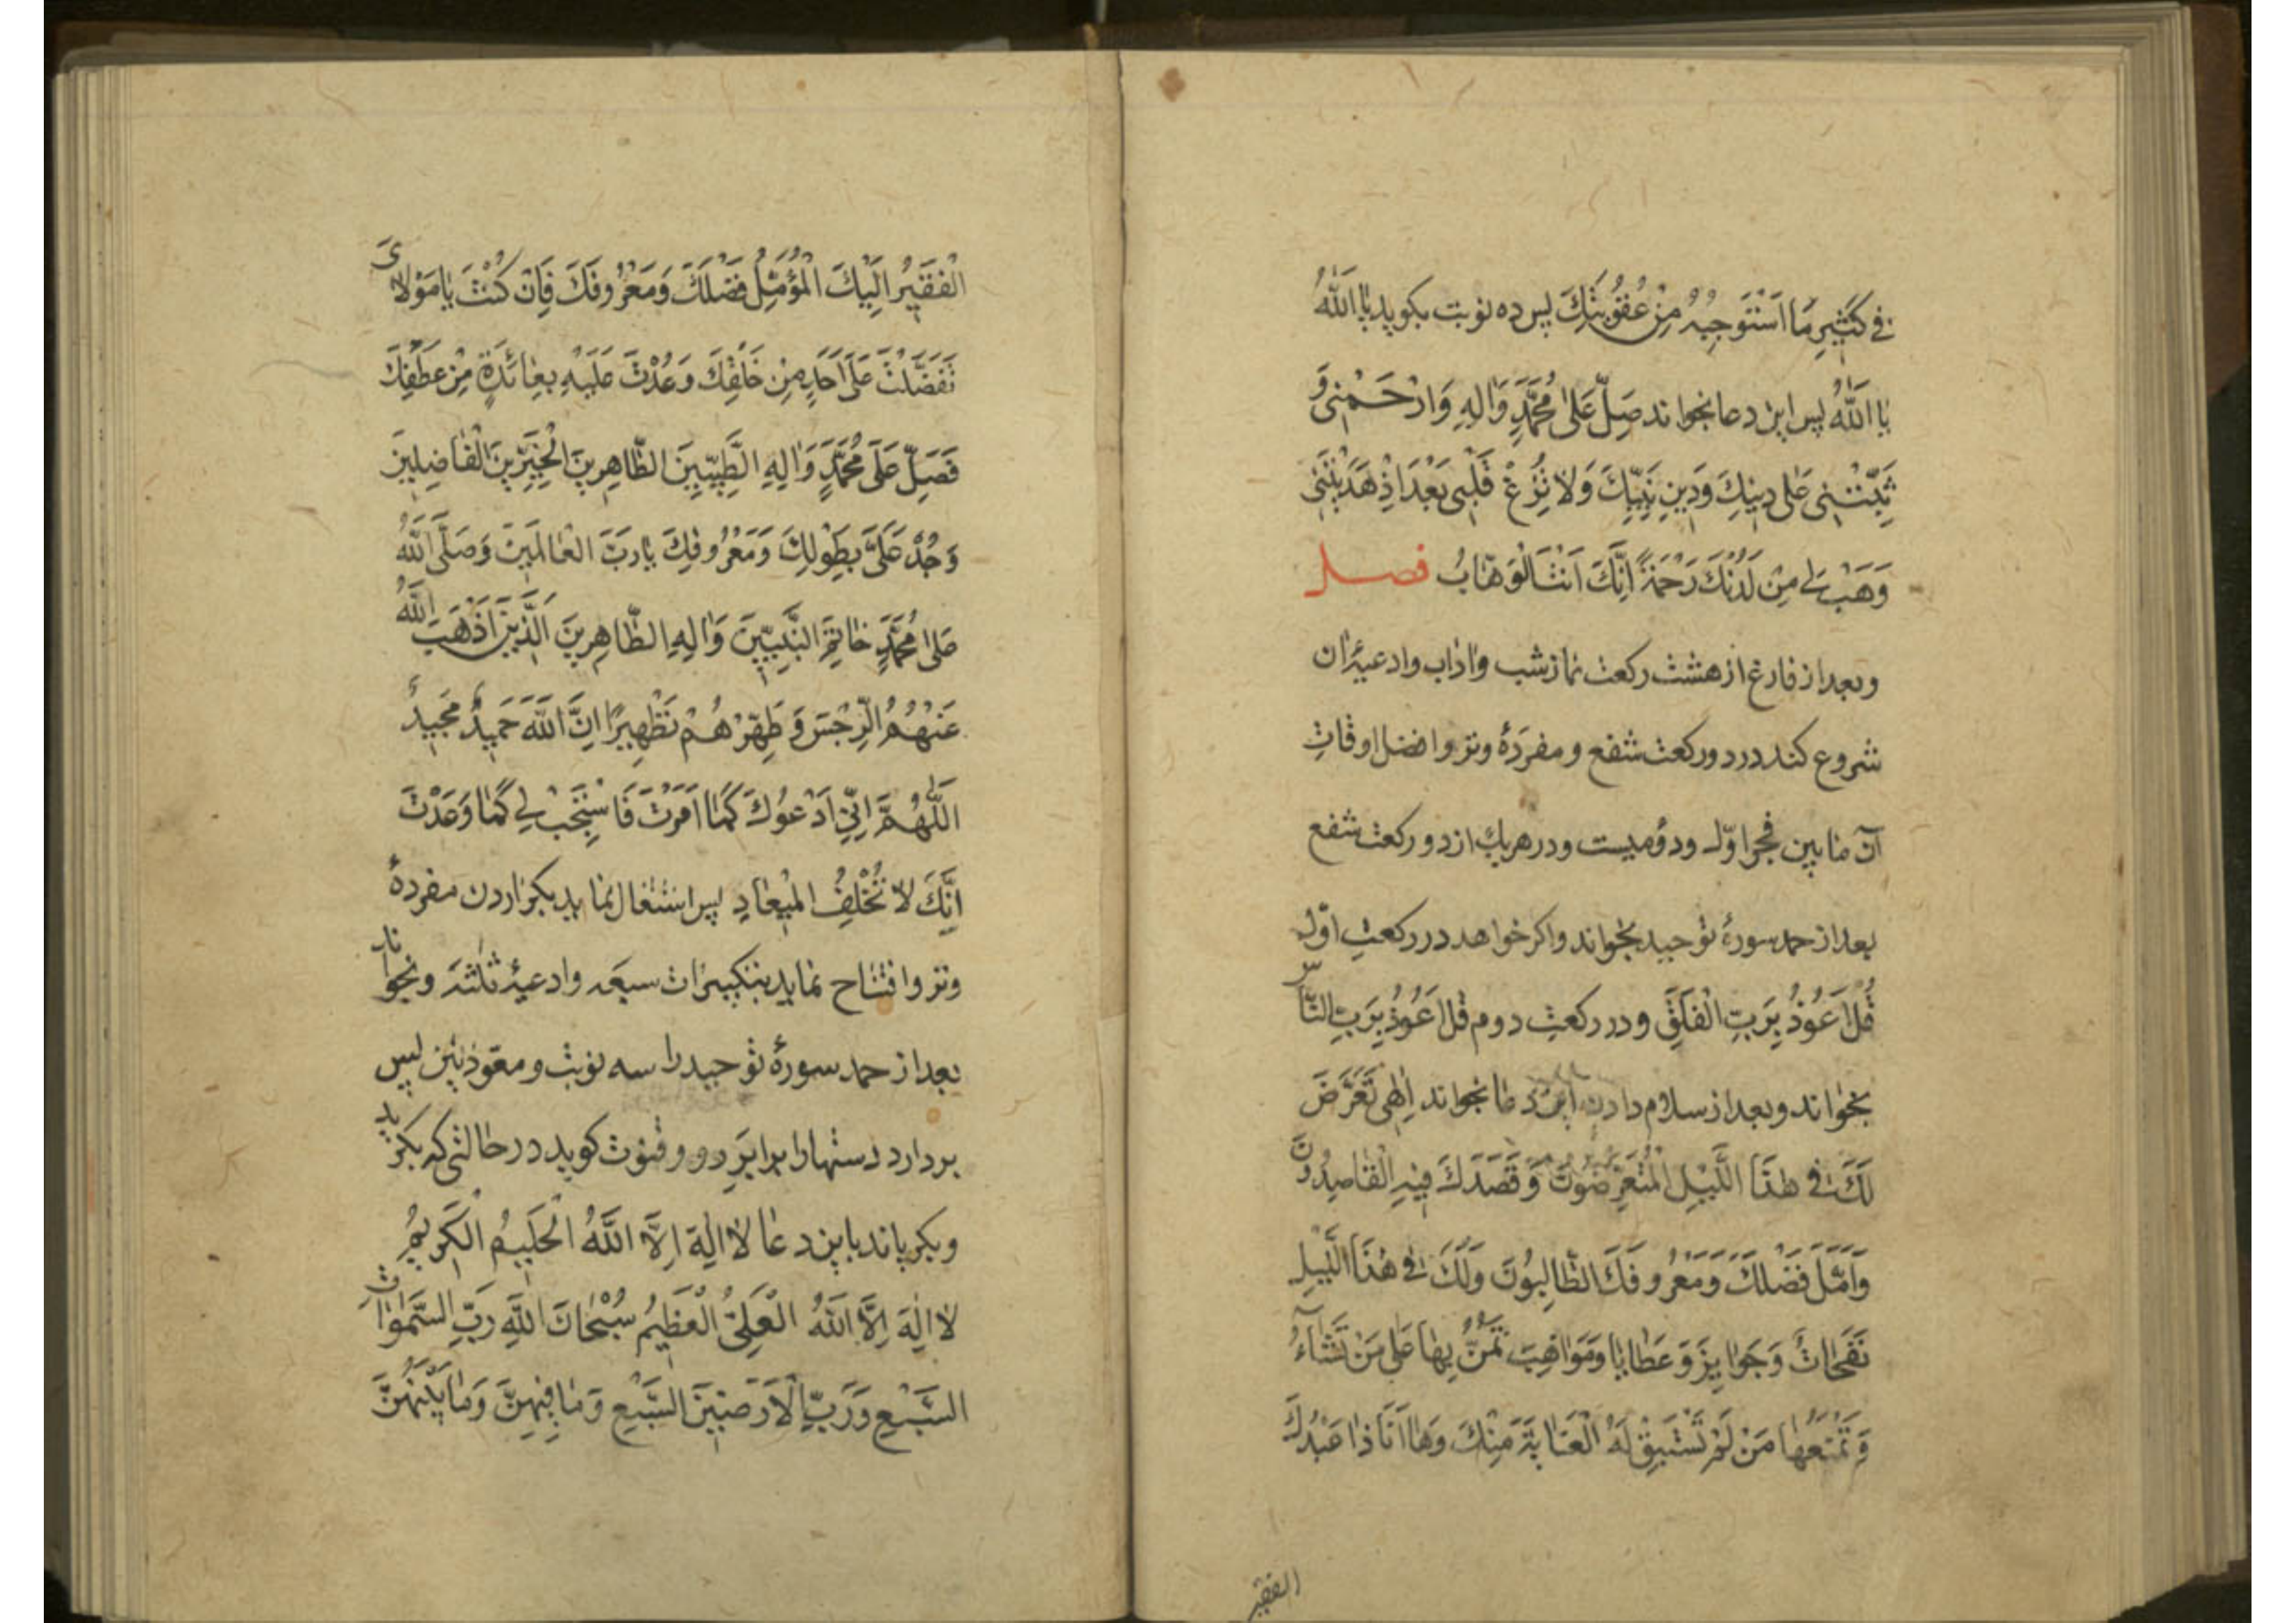 في كَثِيرِ مَا اَسْتَوْجِبُهُ مِنْ عُقُوبَتِكَ پس ده نوبت بكويد يا اَللهُ
يا اَللهُ پس اين دعا بخواند صَلِّ عَلىٰ مُحَمَّدٍ وَالِهِ وَارْحَمْنِي وَ
ثَبِّتْنِي عَلى دِينِكَ وَدِينِ نَبِيِّكَ وَلا تُزِغْ قَلْبِي بَعْدَ اِذْ هَدَيْتَنِي
وَهَبْ لِي مِنْ لَدُنْكَ رَحْمَةً اِنَّكَ اَنْتَ الْوَهّابُ فصل
وبعد از فارغ از هشت ركعت نماز شب واداب وادعيۀ ان
شروع كند در دو ركعت شفع ومفردۀ وتر وافضل اوقاتِ
آن مابين فجر اوّل ودوميست ودر هريك از دو ركعت شفع
بعد از حمد سورۀ توحيد بخواند واكر خواهد در ركعتِ اوّل
قُلْ اَعُوذُ بِرَبِّ الْفَلَقِ ودر ركعتِ دوم قُلْ اَعُوذُ بِرَبِّ النَّاس
بخواند وبعد از سلام دادن اين دعا بخواند اِلٰهِي تَعَرَّضَ
لَكَ في هٰذَا اللَّيْلِ الْمُتَعَرِّضُونَ وَقَصَدَكَ فِيهِ الْقاصِدُونَ
وَاَمَّلَ فَضْلَكَ وَمَعْرُوفَكَ الطّالِبُونَ وَلَكَ في هٰذَا اللَّيْلِ
نَفَحَاتٌ وَجَوايِزَ وَعَطايا ومَوَاهِبَ تَمُنُّ بِها عَلى مَنْ تَشَآءُ
وَتَمْنَعُها مَنْ لَمْ تَسْبِقْ لَهُ الْعَنايَةَ مِنْكَ وَها اَنَا ذا عَبْدُكَ
الفقير
الْفَقِيرُ اِلَيْكَ الْمُؤَمِّلُ فَضْلَكَ وَمَعْرُوفَكَ فَاِنْ كُنْتَ يا مَوْلايَ
تَفَضَّلْتَ عَلى اَحَدٍ مِنْ خَلْقِكَ وَعُدْتَ عَلَيْهِ بِعائَدَةٍ مِنْ عَطْفِكَ
فَصَلِّ عَلَى مُحَمَّدٍ وَالِهِ الطَّيِّبِينَ الطّاهِرِينَ الْخَيِّرِينَ الْفاضِلِينَ
وَجُدْ عَلَيَّ بِطَوْلِكَ وَمَعْرُوفِكَ يا رَبَّ الْعالَمِينَ وَصَلَّى اللهُ
عَلى مُحَمَّدٍ خاتِمِ النَّبِيِّينَ وَالِهِ الطّاهِرِينَ الَّذِينَ اَذْهَبَ اللهُ
عَنْهُمُ الرِّجْسَ وَطَهَّرَهُمْ تَطْهِيرًا اِنَّ اللهَ حَمِيدٌ مَجِيدٌ
اَللّٰهُمَّ اِنِّي اَدْعُوكَ كَمَا اَمَرْتَ فَاسْتَجِبْ لِي كَمَا وَعَدْتَ
اِنَّكَ لا تُخْلِفُ الْمِيعادَ پس اشتغال نمايد بكزاردن مفردۀ
وتر وافتتاح نمايد بتكبيرات سبعه وادعيۀ ثلثه وبخواند
بعد از حمد سورۀ توحيد را سه نوبت ومعوّذتين پس
بردارد دستها را برابرِ رو وقنوت كويد در حالتى كه بكريد
وبكرياند باين دعا لا اِلٰهَ اِلَّا اللهُ الْحَلِيمُ الْكَرِيمُ
لا اِلٰهَ اِلَّا اللهُ الْعَلِيُّ الْعَظِيمُ سُبْحَانَ اللهِ رَبِّ السَّمٰوَاتِ
السَّبْعِ وَرَبِّ الْاَرَضِينَ السَّبْعِ وَما فِيهِنَّ وَما بَيْنَهُنَّ